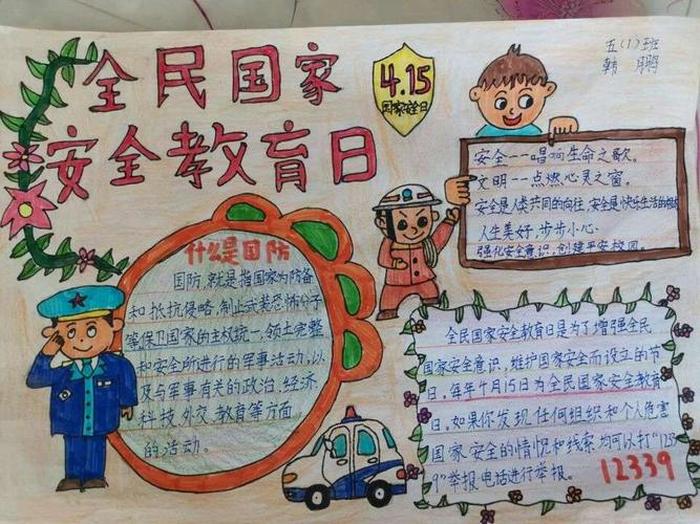 全民国家
安全教育日
4.15
国家安全日
五(1)班
韩鹏
安全---唱响生命之歌。
文明--点燃心灵之窗。
安全是人类共同的向往,安全是快乐生活的
人生美好,步步小心.
强化安全意识,创建平安校园。
什么是国防
国防,就是指国家为防备
和抵抗侵略,制止武装恐怖分子
保卫国家的主权统一,领土完整
和安全所进行的军事活动,以
及与军事有关的政治,经济,
科技,外交,教育等方面
的活动。
全民国家安全教育日是为了增强全民
国家安全意识,维护国家安全而设立的节
日,每年4月15日为全民国家安全教育
日,如果你发现任何组织和个人危害
国家安全的情况和线索均可以打"1233
9"举报电话进行举报。
12339